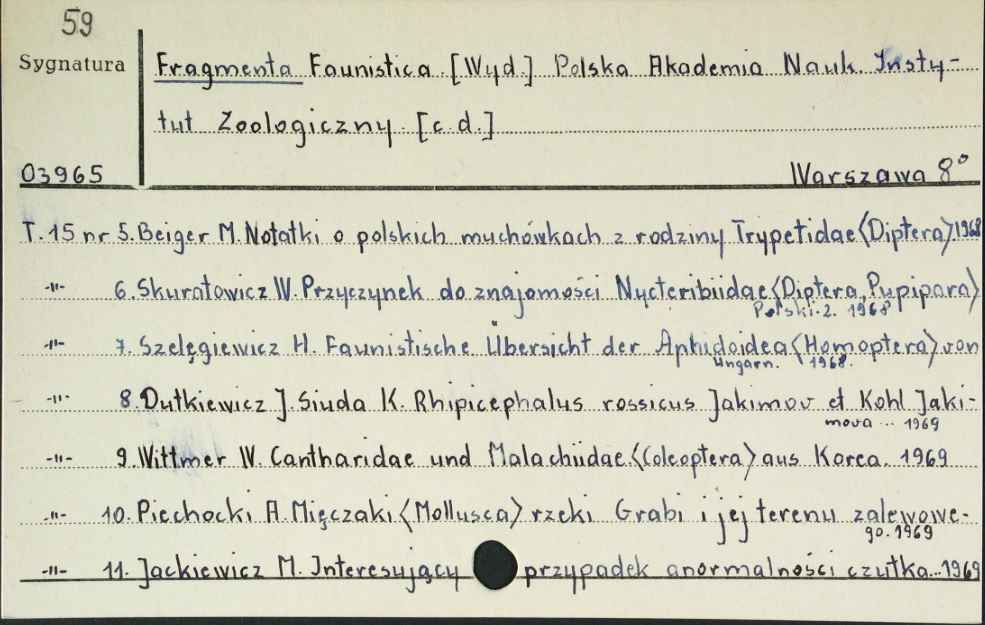 59
Sygnatura
Fragmenta Faunistica. [Wyd.] Polska Akademia Nauk. Insty-
tut Zoologiczny. [c.d.]
03965
Warszawa 8°
T. 15 nr 5. Beiger M. Notatki o polskich muchówkach z rodziny Trypetidae <Diptera>. 1968
-"- 6. Skuratowicz W. Przyczynek do znajomości Nycteribiidae <Diptera, Pupipara>
Polski. 2. 1968
-"- 7. Szelęgiewicz H. Faunistische Übersicht der Aphidoidea <Homoptera> von
Ungarn. 1968.
-"- 8. Dutkiewicz J. Siuda K. Rhipicephalus rossicus Jakimov et Kohl Jaki-
mova ... 1969
-"- 9. Wittmer W. Cantharidae und Malachiidae. <Coleoptera> aus Korea. 1969
-"- 10. Piechocki A. Mięczaki <Mollusca> rzeki Grabi i jej terenu zalewowe-
go. 1969
-"- 11. Jackiewicz M. Interesujący przypadek anormalności czułka... 1969